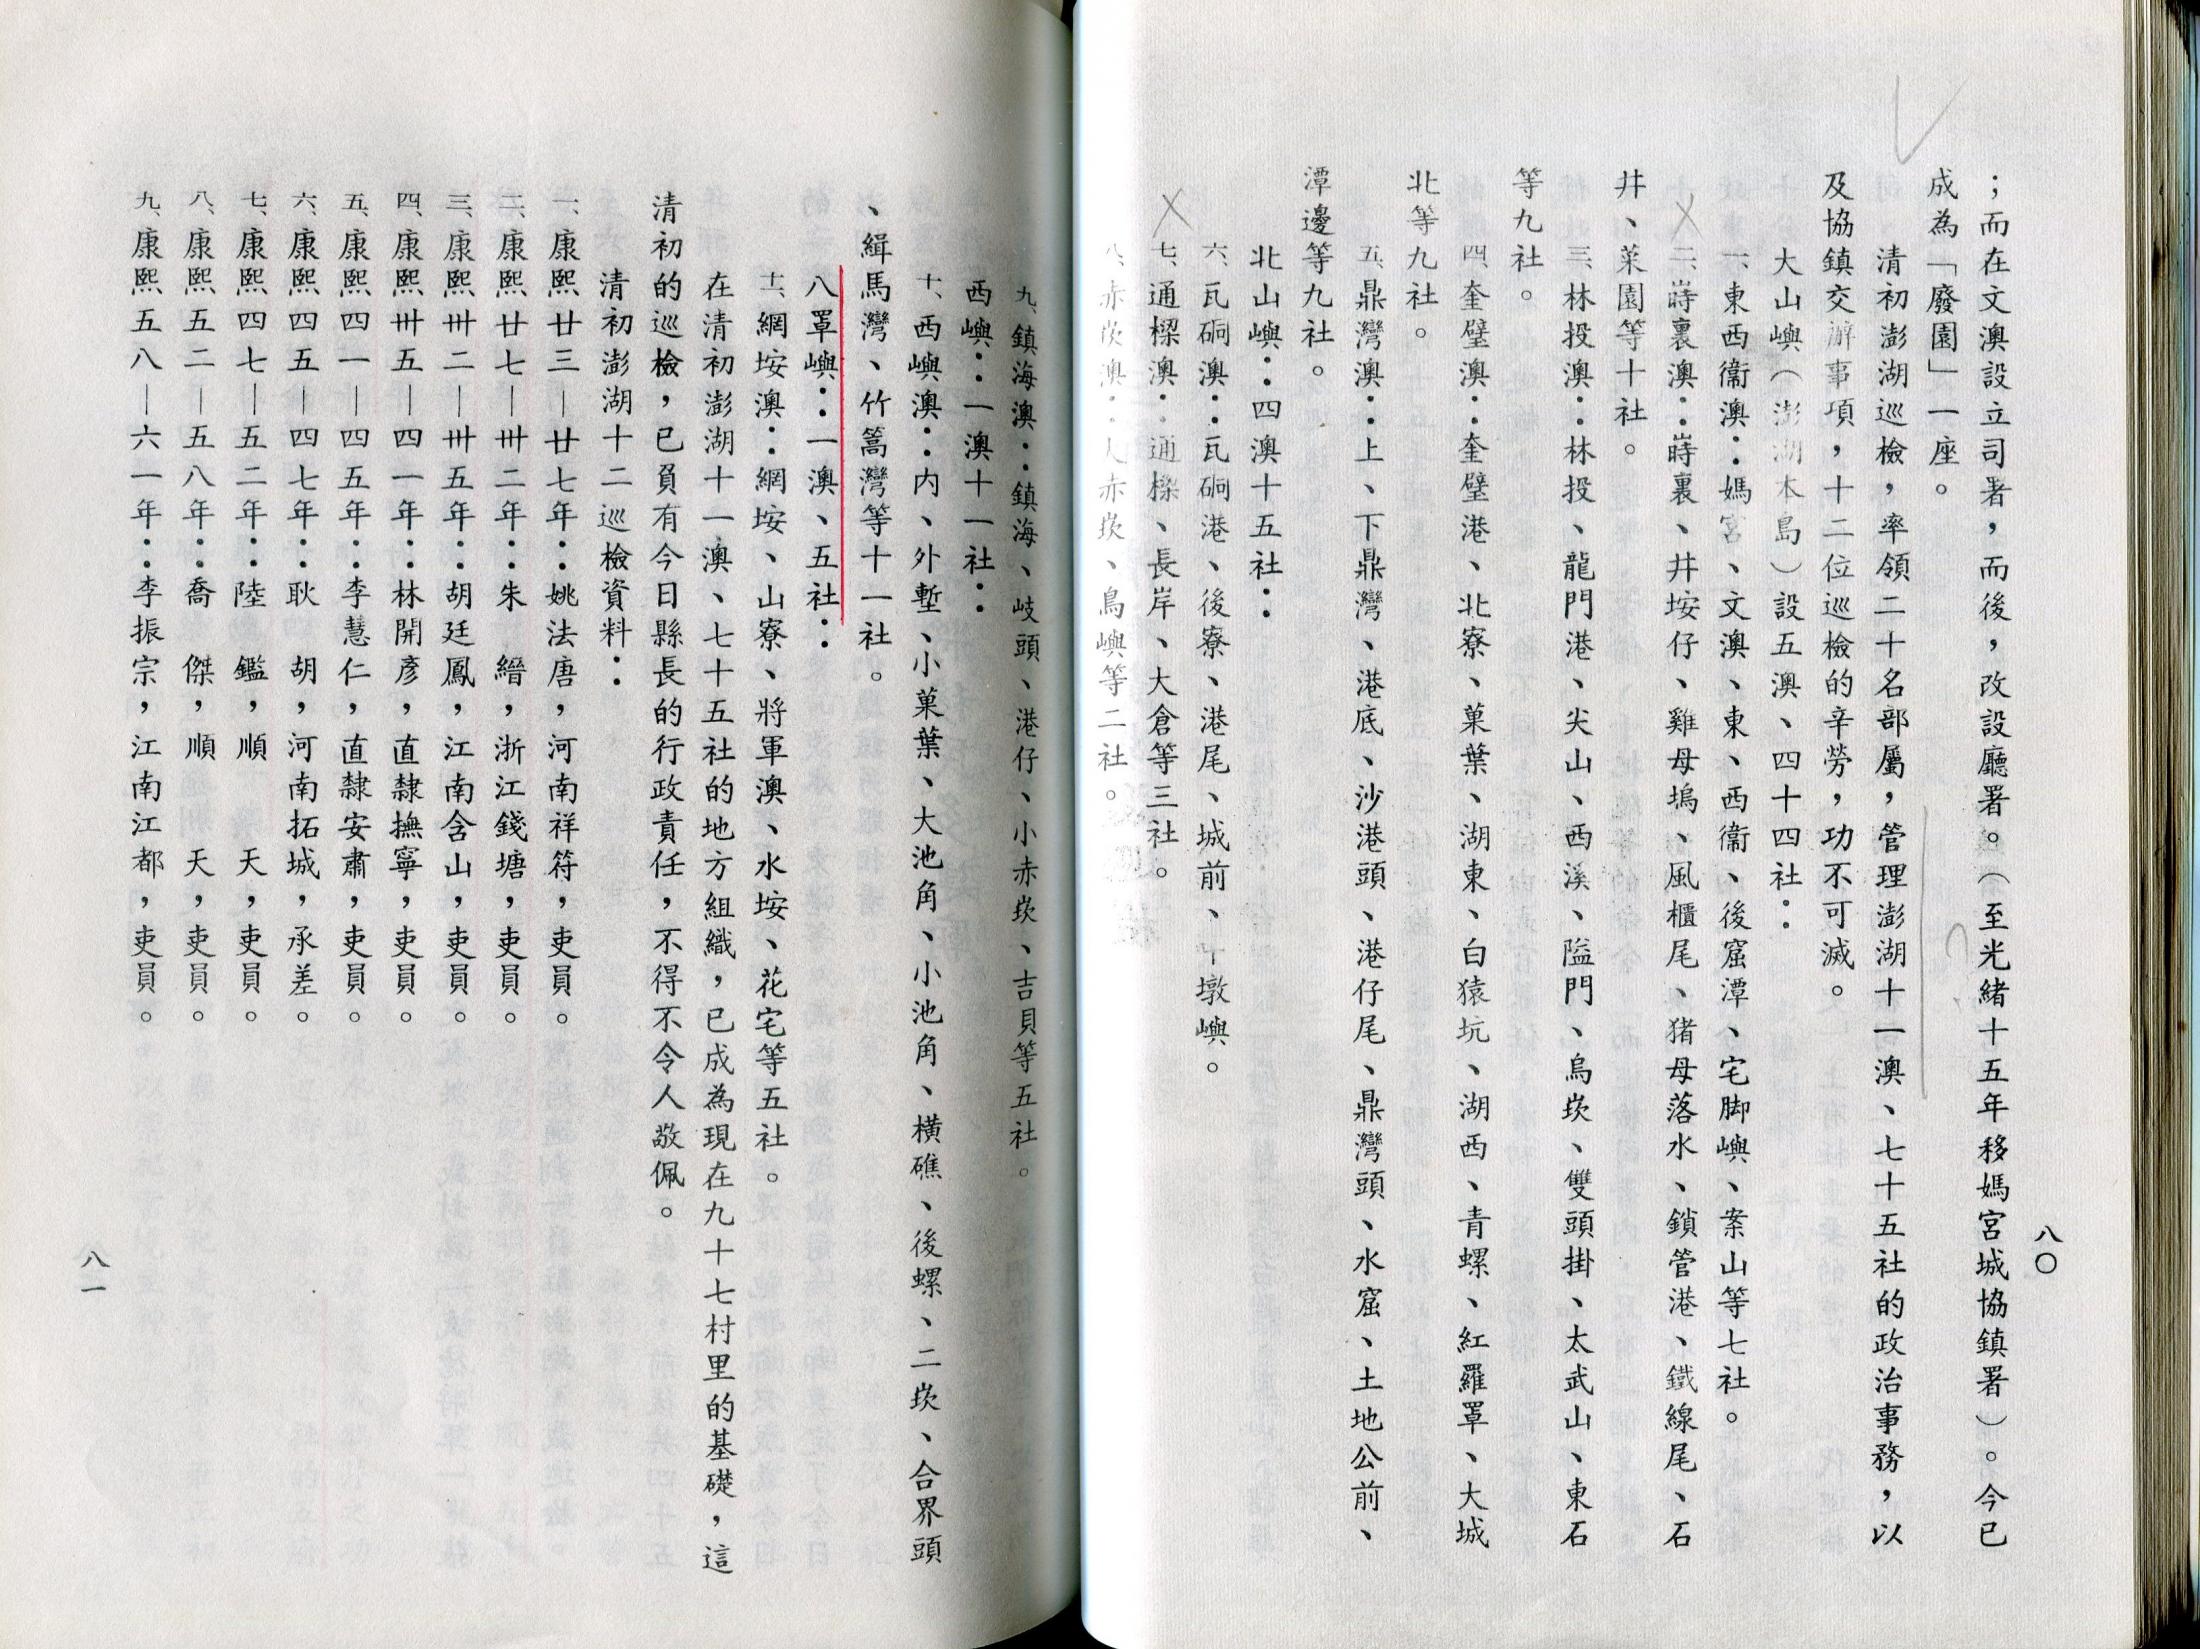 八〇
；而在文澳設立司署，而後，改設廳署。（至光緒十五年移媽宮城協鎮署）。今已
成為「廢園」一座。
清初澎湖巡檢，率領二十名部屬，管理澎湖十一澳、七十五社的政治事務，以
及協鎮交辦事項，十二位巡檢的辛勞，功不可滅。
大山嶼（澎湖本島）設五澳、四十四社：
一、東西衞澳：媽宮、文澳、東、西衞、後窟潭、宅脚嶼、案山等七社。
二、嵵裏澳：嵵裏、井垵仔、雞母塢、風櫃尾、猪母落水、鎖管港、鐵線尾、石
井、菜園等十社。
三、林投澳：林投、龍門港、尖山、西溪、隘門、烏崁、雙頭掛、太武山、東石
等九社。
四、奎璧澳：奎璧港、北寮、菓葉、湖東、白猿坑、湖西、青螺、紅羅罩、大城
北等九社。
五、鼎灣澳：上、下鼎灣、港底、沙港頭、港仔尾、鼎灣頭、水窟、土地公前、
潭邊等九社。
北山嶼：四澳十五社：
六、瓦硐澳：瓦硐港、後寮、港尾、城前、中墩嶼。
七、通樑澳：通樑、長岸、大倉等三社。
八、赤崁澳：大赤崁、鳥嶼等二社。
九、鎮海澳：鎮海、岐頭、港仔、小赤崁、吉貝等五社。
西嶼：一澳十一社：
十、西嶼澳：內、外塹、小菓葉、大池角、小池角、橫礁、後螺、二崁、合界頭
、緝馬灣、竹篙灣等十一社。
八罩嶼：一澳、五社：
十一、網垵澳：網垵、山寮、將軍澳、水垵、花宅等五社。
在清初澎湖十一澳、七十五社的地方組織，已成為現在九十七村里的基礎，這
清初的巡檢，已負有今日縣長的行政責任，不得不令人敬佩。
清初澎湖十二巡檢資料：
一、康熙廿三—廿七年：姚法唐，河南祥符，吏員。
二、康熙廿七—卅二年：朱　縉，浙江錢塘，吏員。
三、康熙卅二—卅五年：胡廷鳳，江南含山，吏員。
四、康熙卅五—四一年：林開彥，直隸撫寧，吏員。
五、康熙四一—四五年：李慧仁，直隸安肅，吏員。
六、康熙四五—四七年：耿　胡，河南拓城，承差。
七、康熙四七—五二年：陸　鑑，順　天，吏員。
八、康熙五二—五八年：喬　傑，順　天，吏員。
九、康熙五八—六一年：李振宗，江南江都，吏員。
八一